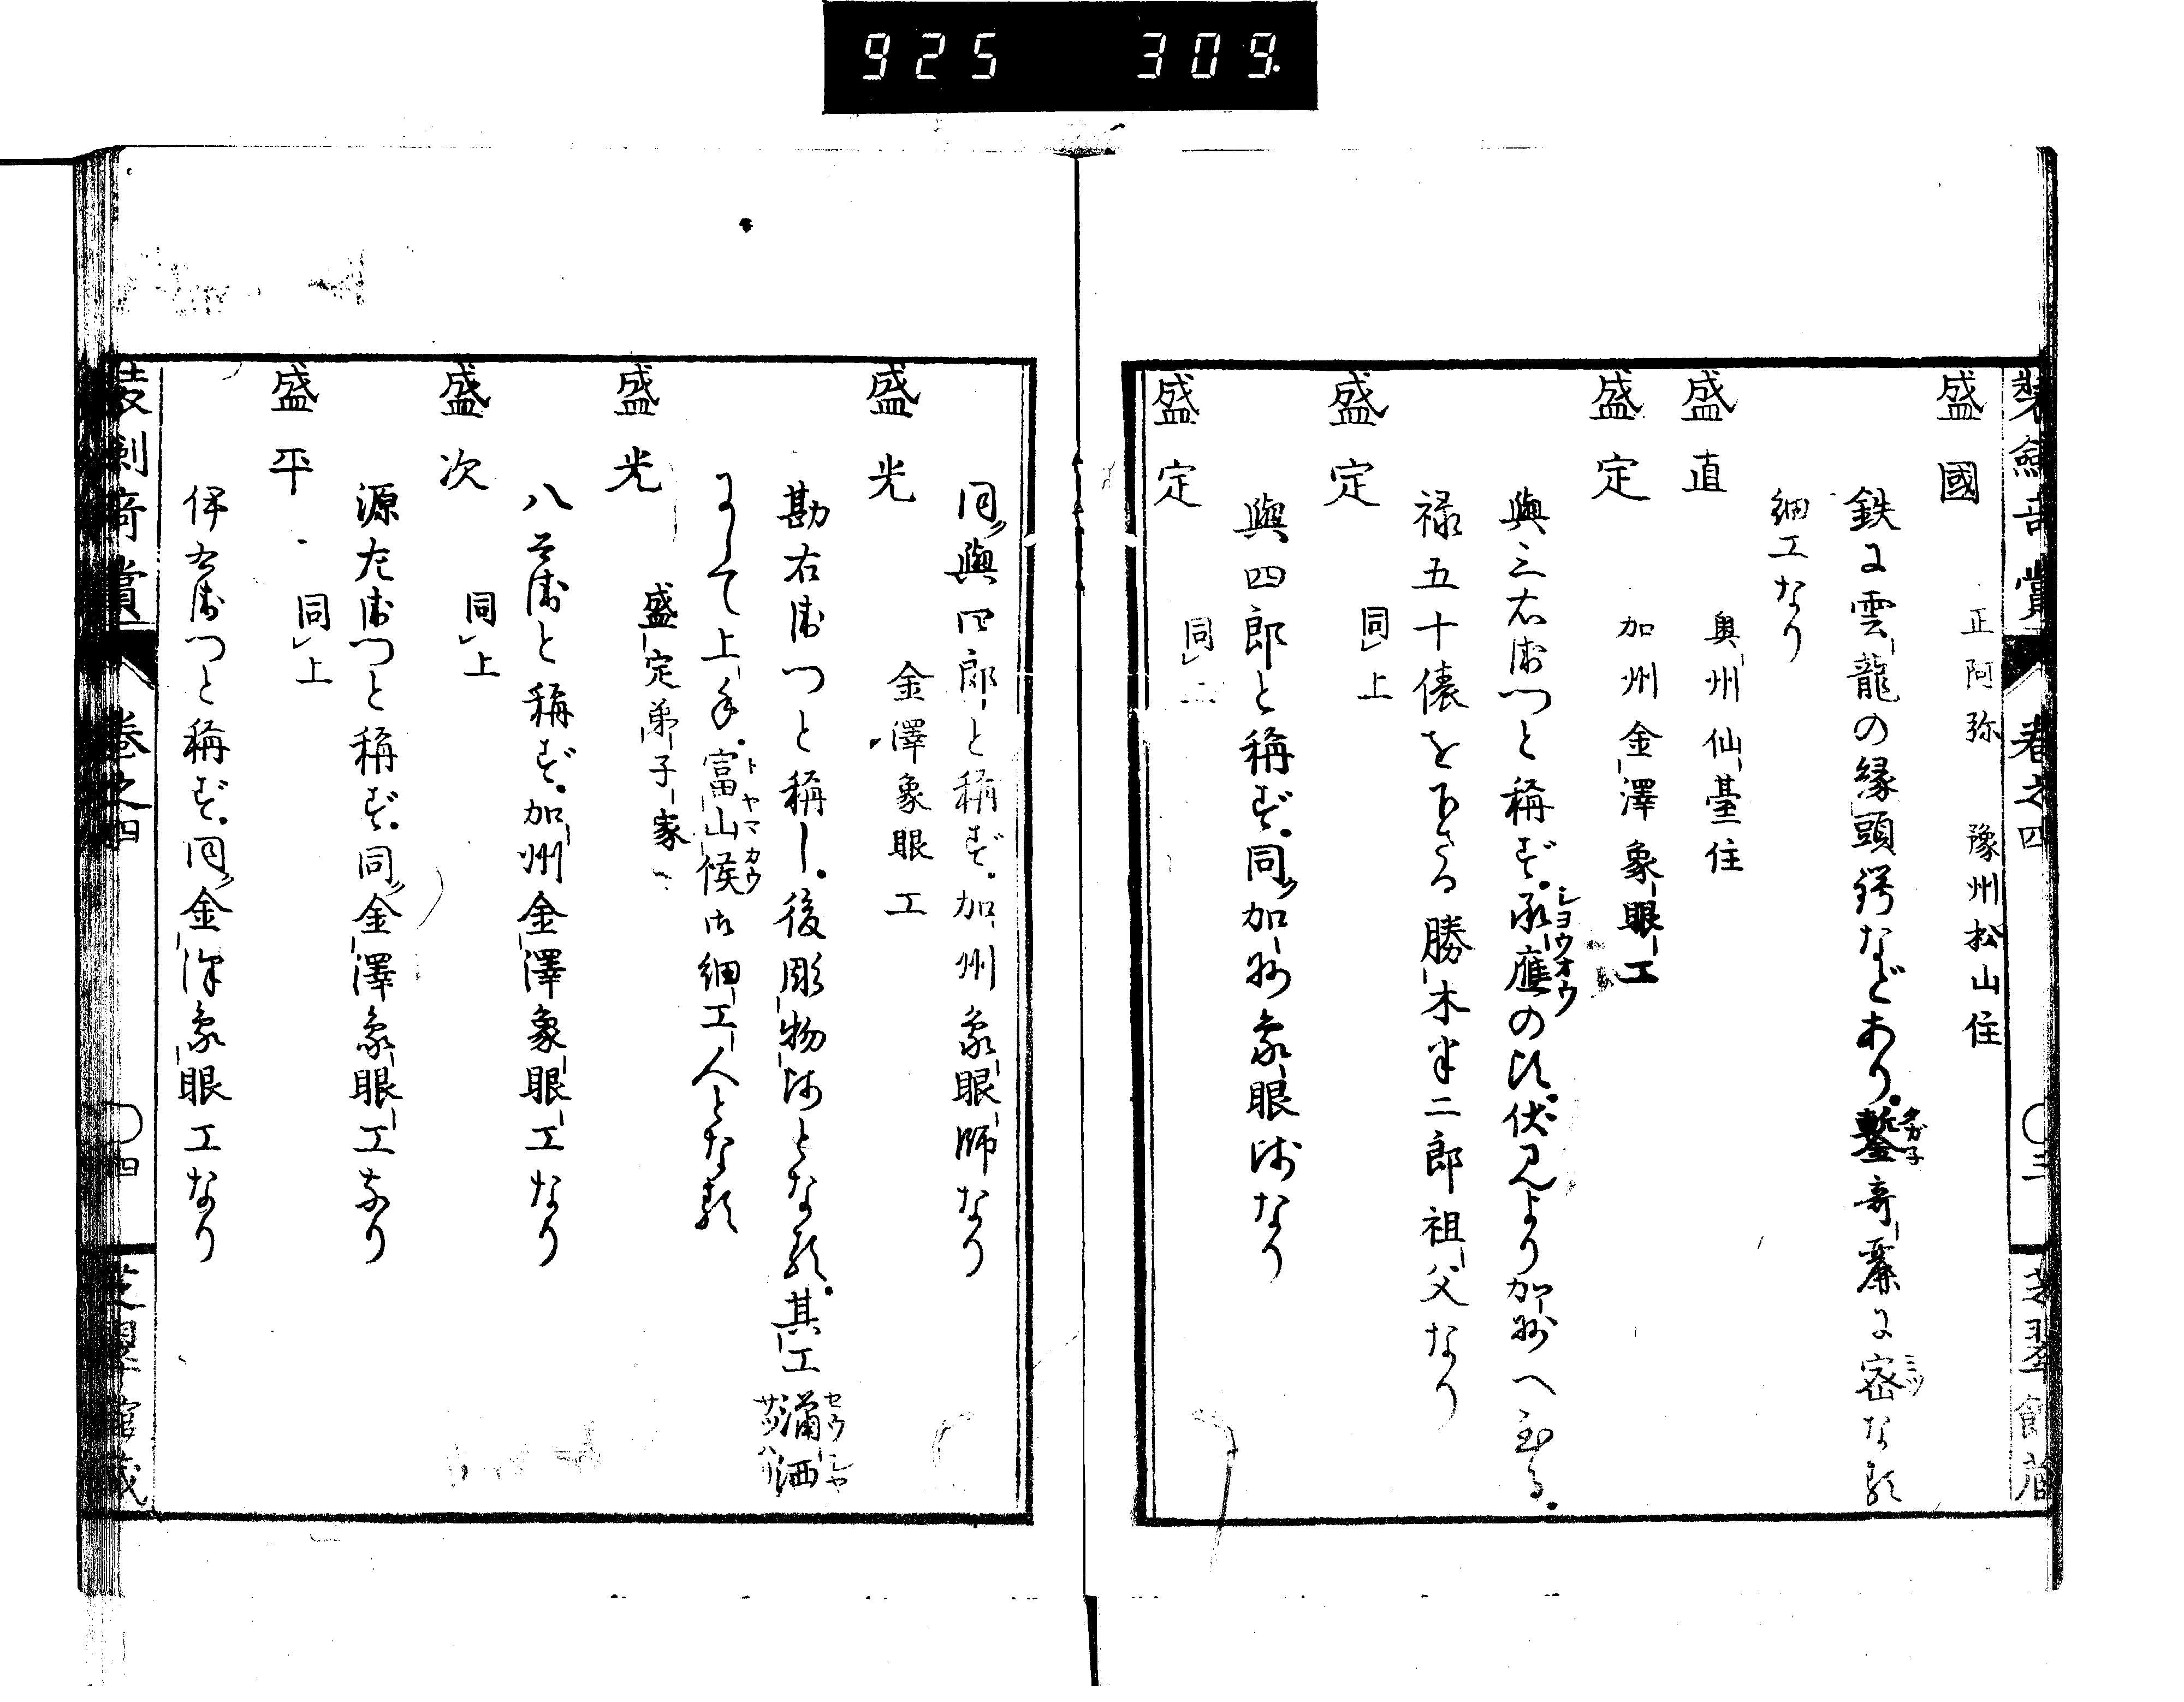 925 309
装劔奇賞 巻之四 〇三 芝翠館蔵
盛國 正阿弥 豫州松山住
鉄に雲龍の縁頭鍔などあり。鏨奇麗に密なる
細工なり
盛直 奥州仙臺住
盛定 加州金澤象眼工
與三右衛門と稱ず。承應の比。伏見より加州へ至る。
禄五十俵を下さる勝木半二郎祖父なり
盛定 同上
與四郎と稱ず。同加州象眼師なり
盛定 同上
同與四郎と稱ず。加州象眼師なり
盛光 金澤象眼工
勘右衛門と稱し。後彫物師となる。其工瀟洒
にして上手。富山候御細工人となる
盛光 盛定弟子家
八兵衛と稱ず。加州金澤象眼工なり
盛次 同上
源左衛門と稱ず。同金澤象眼工なり
盛平 同上
伊右衛門と稱ず。同金澤象眼工なり
装劍奇賞 巻之四 〇四 芝翠館蔵